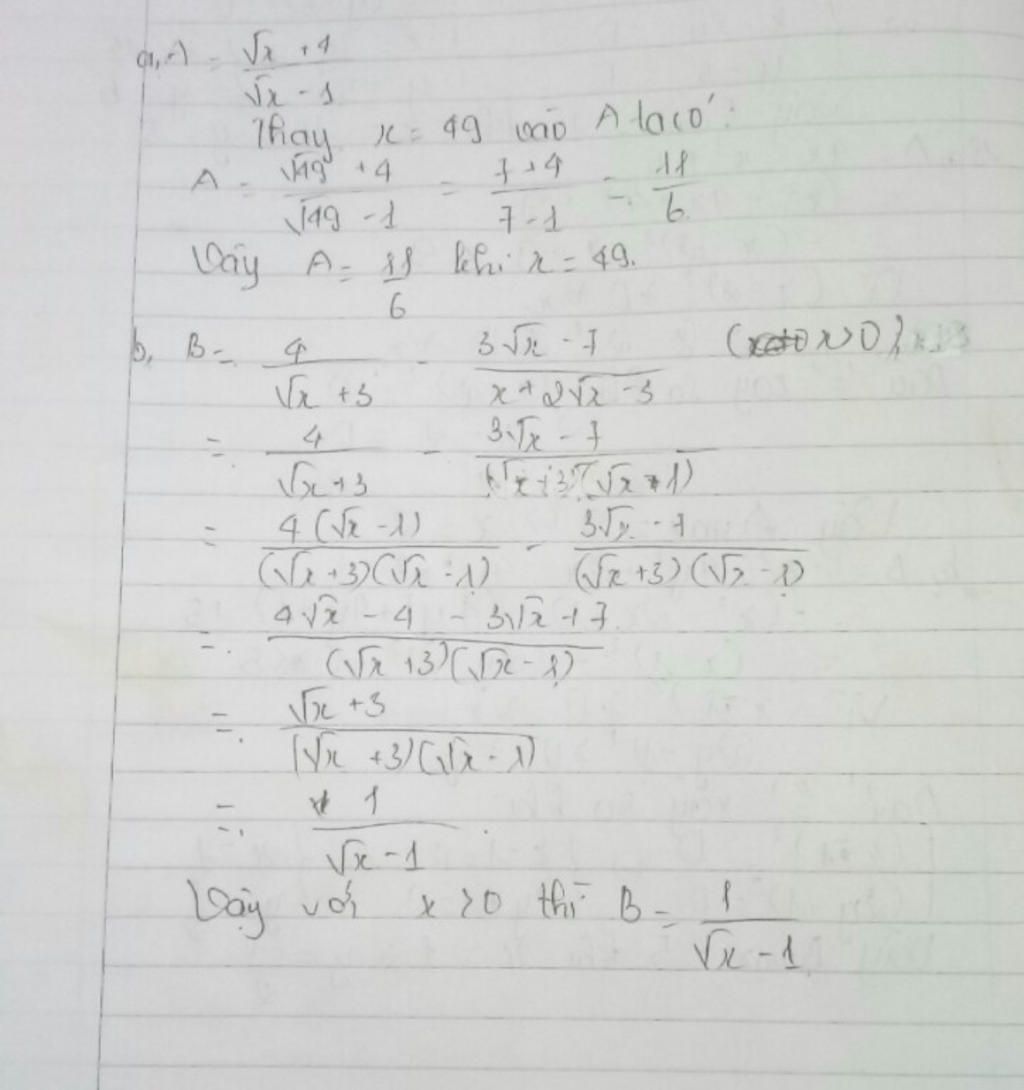 a, A = (√x + 4)/(√x - 1)
Thay x = 49 vào A ta có:
A = (√49 + 4)/(√49 - 1) = (7 + 4)/(7 - 1) = 11/6
Vậy A = 11/6 khi x = 49.
b, B = 4/(√x + 3) - (3√x - 7)/(x + 2√x - 3) (x > 0;
= 4/(√x + 3) - (3√x - 7)/((√x + 3)(√x - 1))
= 4(√x - 1)/((√x + 3)(√x - 1)) - (3√x - 7)/((√x + 3)(√x - 1))
= (4√x - 4 - 3√x + 7)/((√x + 3)(√x - 1))
= (√x + 3)/((√x + 3)(√x - 1))
= 1/(√x - 1).
Vậy với x > 0 thì B = 1/(√x - 1)